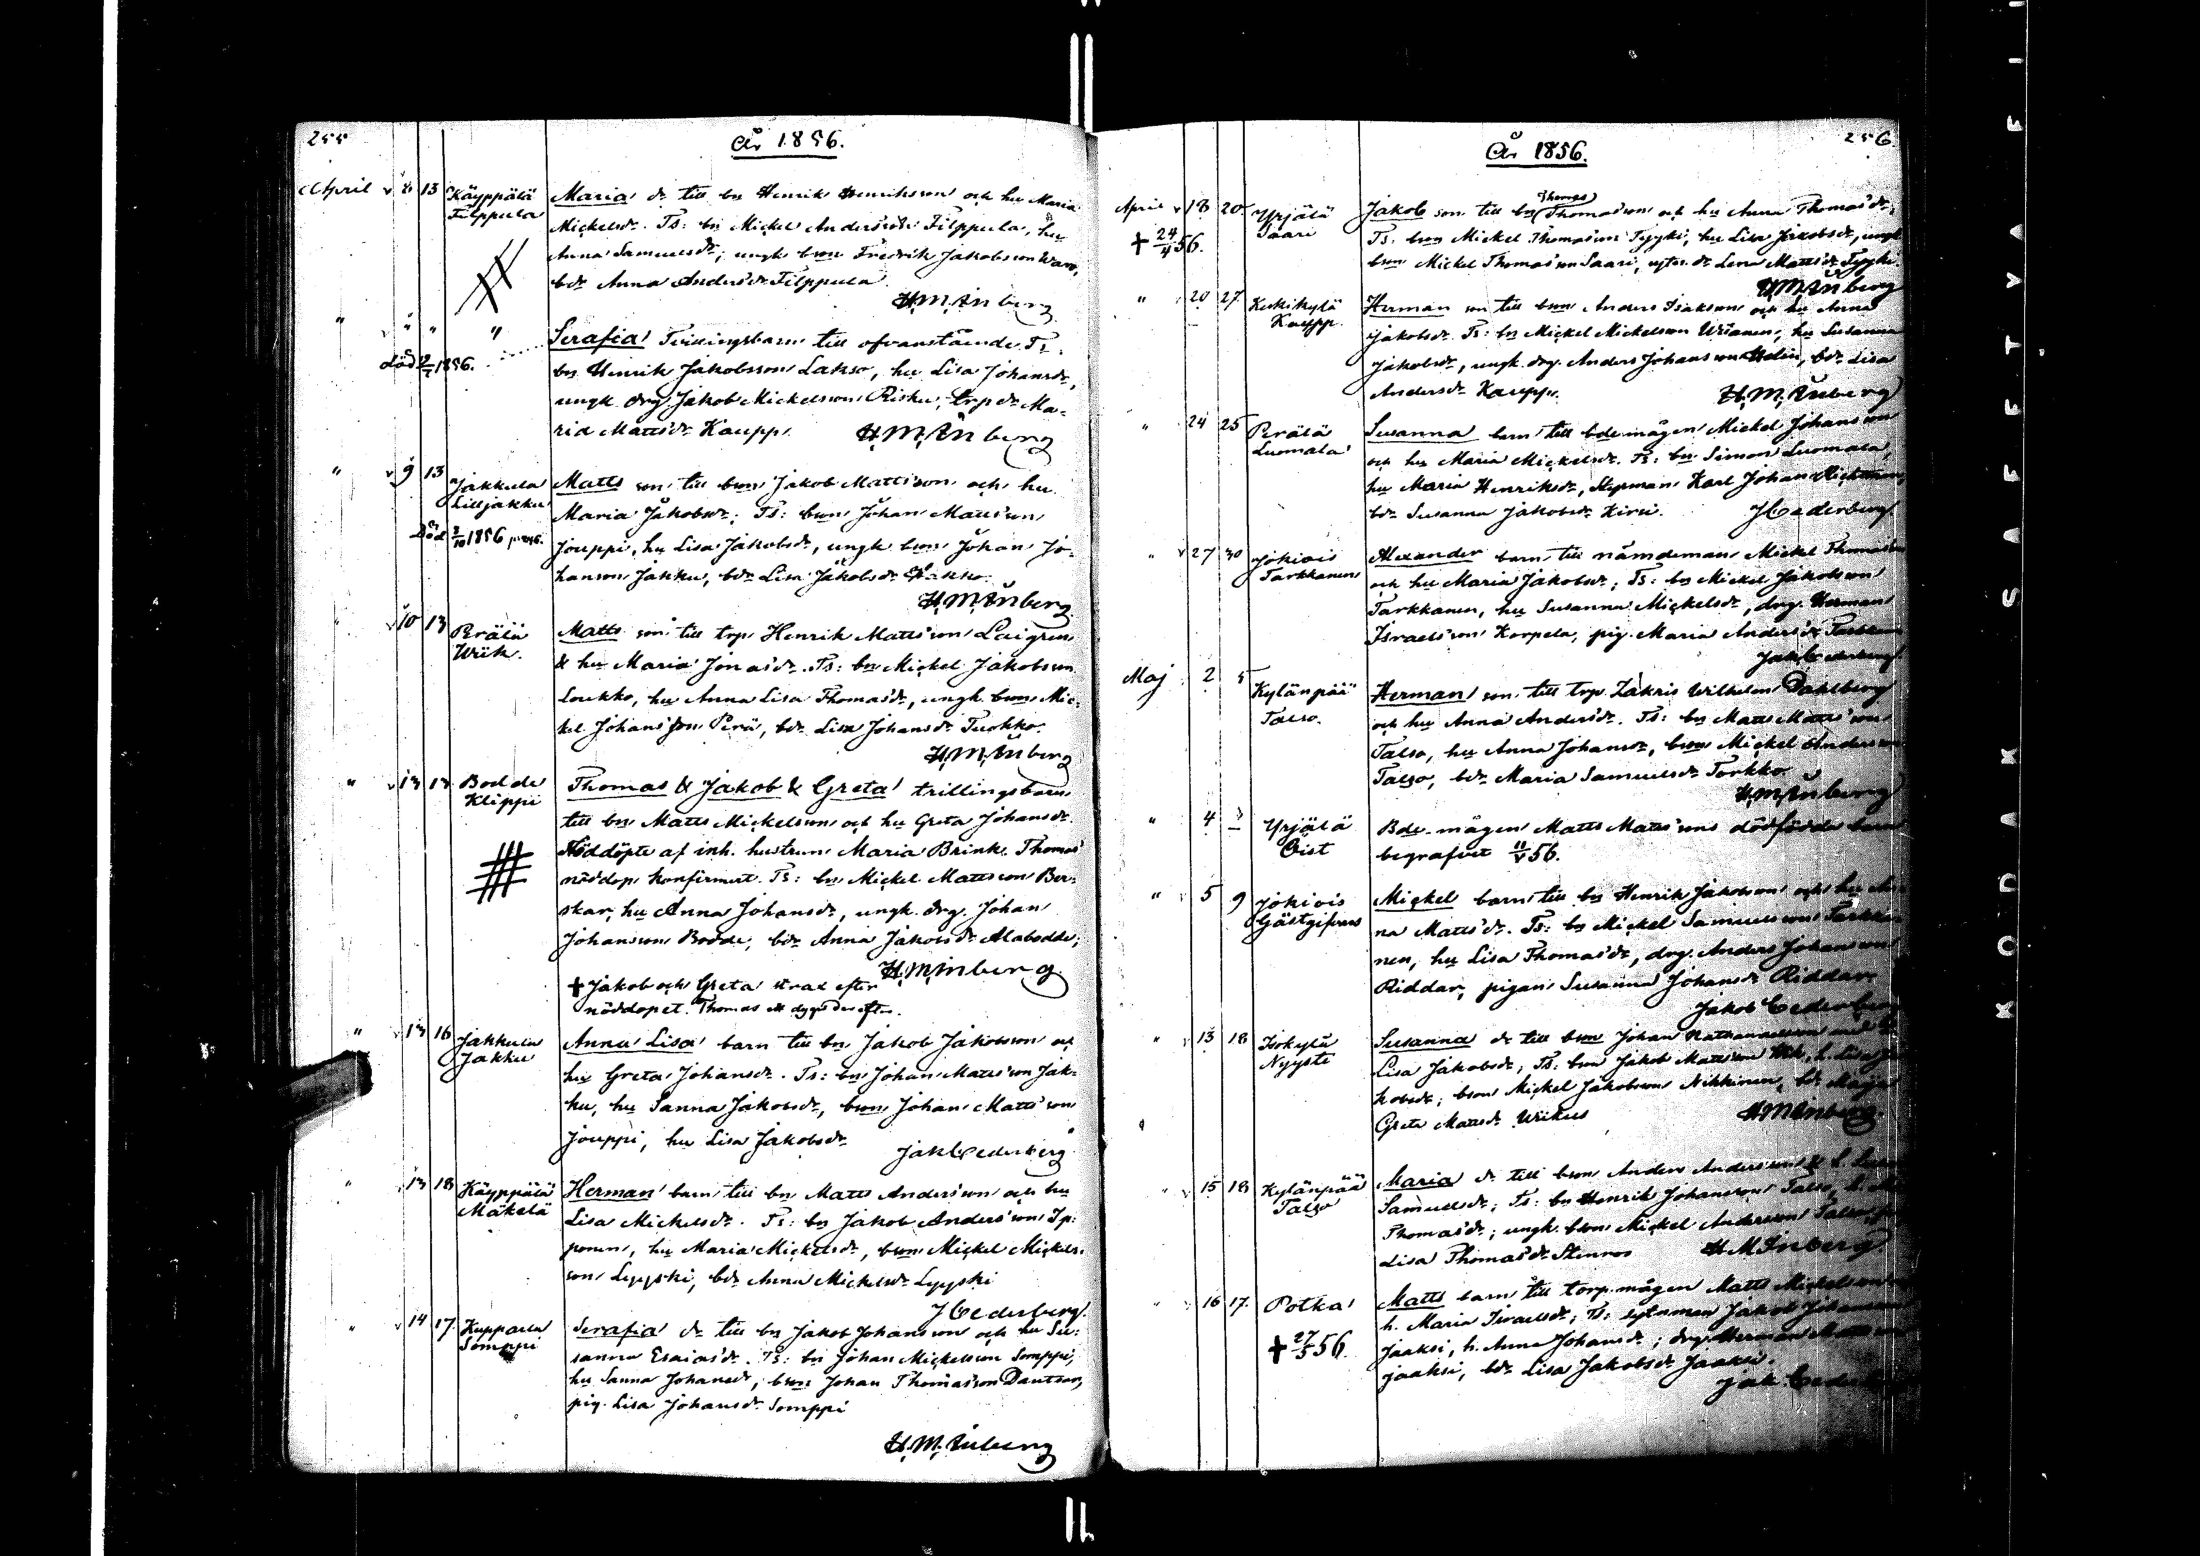 255
År 1856.
April 8 13 Käyppälä Filppula
Maria dr till bn Henrik Henriksson och hu Maria
Mickelsdr. Ts: bn Mickel Andersson Filppula, hu
Anna Samuelsdr, ungk. bson Fredrik Jakobsson
bdr Anna Andersdr Filppula
H.M. Inberg
" " " "
Serafia Tvillingsbarn till ofvanstående. Ts:
död 1856.
bn Henrik Jakobsson Lakso, hu Lisa Johansdr,
ungk. drg Jakob Mickelsson Risku, trp dr Ma-
ria Mattsdr Kauppi.
H.M. Inberg
" 9 13 Jakkula Lilljakku
Matts son till bson Jakob Mattsson och hu
Maria Jakobsdr; Ts: bson Johan Mattsson
Död 1856
Jouppi, hu Lisa Jakobsdr, ungk. bson Johan Jo-
hansson Jakku, bdr Lisa Jakobsdr
H.M. Inberg
10 13 Perälä Wiik.
Matts son till trp Henrik Mattsson Laigren
& hu Maria Jonasdr. Ts: bn Mickel Jakobsson
Loukko, hu Anna Lisa Thomasdr, ungk. bson Mic-
kel Johansson Perä, bdr Lisa Johansdr Turkko.
H.M. Inberg
" 13 13 Bodde Klippi
Thomas & Jakob & Greta trillingsbarn
till bn Matts Mickelsson och hu Greta Johansdr.
Nöddöpte af inh. hustrun Maria Brink. Thomas
nöddop konfirmert. Ts: bn Mickel Mattsson Ber-
skar, hu Anna Johansdr, ungk. drg. Johan
Johansson Bodde, bdr Anna Jakobsdr Alabodde;
H.M. Inberg
† Jakob och Greta strax efter
nöddopet. Thomas ett dygn derefter.
" 13 16 Jakkula Jakku
Anna Lisa barn till bn Jakob Jakobsson och
hu Greta Johansdr. Ts: bn Johan Mattsson Jak-
ku, hu Sanna Jakobsdr, bson Johan Mattsson
Jouppi, hu Lisa Jakobsdr
Jak Cederberg
" 13 18 Käyppälä Mäkelä
Herman barn till bn Matts Andersson och hu
Lisa Mickelsdr. Ts: bn Jakob Andersson Ip-
ponen, hu Maria Mickelsdr, bson Mickel Mickels-
son Lyyski, bdr Anna Mickelsdr Lyyski
J Cederberg.
" 14 17 Kupparla Somppi
Serafia dr till bn Jakob Johansson och hu Su-
sanna Esaiasdr. Ts: bn Johan Mickelsson Somppi,
hu Sanna Johansdr, bson Johan Thomasson
pig. Lisa Johansdr Somppi
H.M. Inberg
256
År 1856.
April 18 20 Yrjälä Saari
† 24/4 56.
Jakob son till bn Thomas Thomasson och hu Anna Thomasdr;
Ts: bson Mickel Thomasson Tyyki, hu Lisa Jakobsdr, ungk
bson Mickel Thomasson Saari, Lena Mattsdr
H.M. Inberg
" 20 27 Keskikylä Kaupp.
Herman son till bson Anders Isaksson och hu Anna
Jakobsdr. Ts: bn Mickel Mickelsson hu Susanna
Jakobsdr, ungk. drg. Anders Johansson bdr Lisa
Andersdr Kauppi.
H.M. Inberg
" 24 25 Perälä Luomala
Susanna barn till bdemågen Mickel Johansson
och hu Maria Mickelsdr. Ts: bn Simon Luomala,
hu Maria Henriksdr, Karl Johan
bdr Susanna Jakobsdr Hirsi.
J Cederberg
" 27 30 Jokiois Tarkkanen
Alexander barn till nämdeman Mickel Thomasson
och hu Maria Jakobsdr; Ts: bn Mickel Jakobsson
Tarkkanen, hu Susanna Mickelsdr, drg. Herman
Israelsson Korpela, pig. Maria Andersdr
Jak Cederberg
Maj 2 5 Kylänpää Talso.
Herman son till trp. Zakris Wilhelm Dahlberg
och hu Anna Andersdr. Ts: bn Matts Mattsson
Talso, hu Anna Johansdr, bson Mickel Andersson
Talso, bdr Maria Samuelsdr Torkko.
H.M. Inberg
" 4 – Yrjälä Qvist
Bde-mågen Matts Mattssons dödfödda barn
begrafvet 11/5 56.
" 5 9 Jokiois Gästgifvars
Mickel barn till bn Henrik Jakobsson och hu An-
na Mattsdr. Ts: bn Mickel Samuelsson Tarkka-
nen, hu Lisa Thomasdr, drg. Anders Johansson
Riddar, pigan Susanna Johansdr Riddar.
Jakob Cederberg
" 13 18 Isokylä Nyyste
Susanna dr till bson Johan
Lisa Jakobsdr; Ts: bson Jakob Mattsson
kobsdr; bson Mickel Jakobsson Nikkinen, bdr Maja
Greta Mattsdr Wiikus
H.M. Inberg.
" 15 18 Kylänpää Talso
Maria dr till bson Anders Andersson
Samuelsdr; Ts: bn Henrik Johansson Talso,
Thomasdr; ungk. bson Mickel Andersson Talso
Lisa Thomasdr Stenros
H M Inberg.
16 17. Potka
Matts barn till torp.mågen Matts Mickelsson
h. Maria Israelsdr; Ts: Jakob Johansson
† 27/5 56.
Jaaksi, h. Anna Johansdr; drg. Herman Mattsson
Jaaksi, bdr Lisa Jakobsdr Jaaksi.
Jak. Cederberg
KODAK SAFETY FI